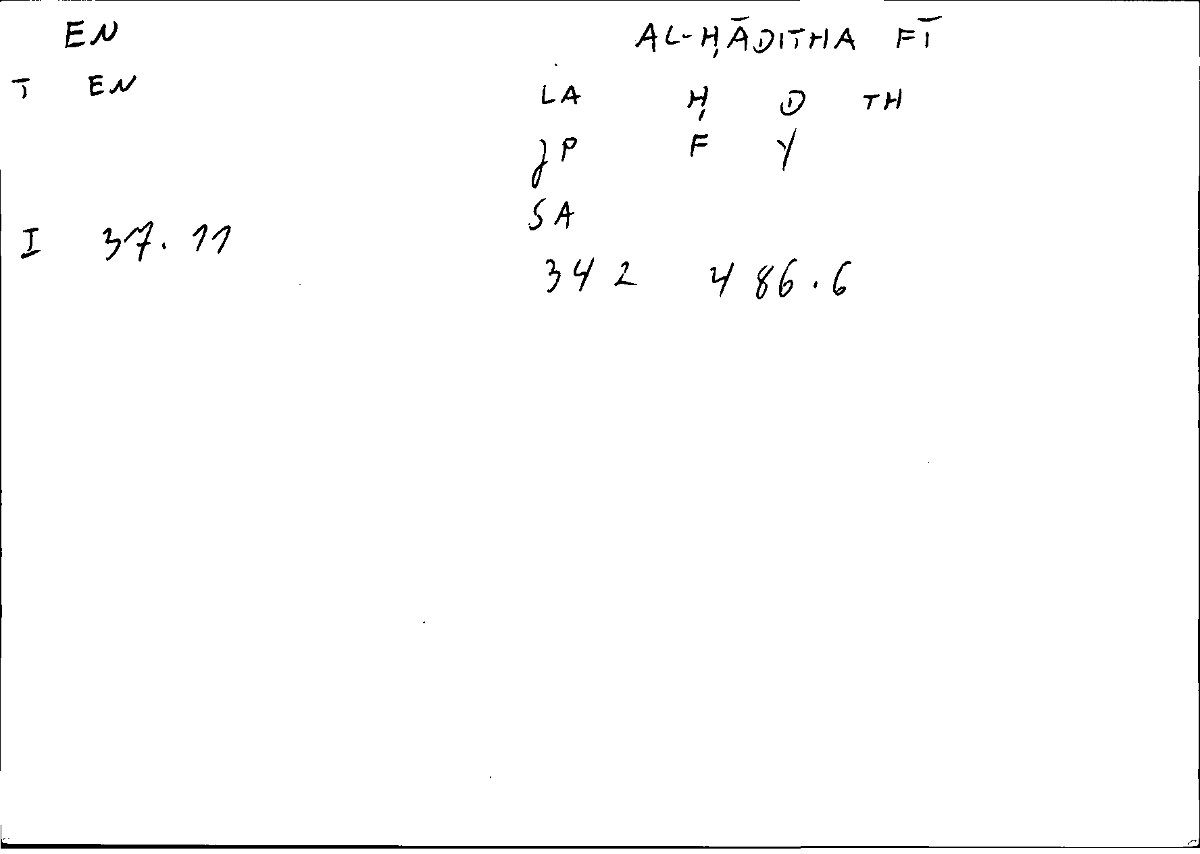 EN AL-ḤĀDITHA FĪ
T EN LA Ḥ D TH
JP F Y
SA
I 37.11
342 486.6